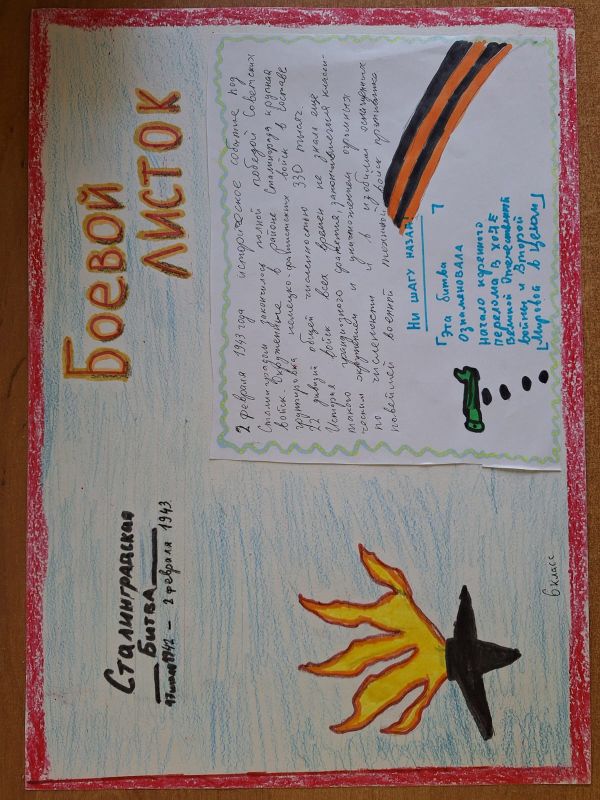 Сталинградская
битва
17 июля 1942 – 2 февраля 1943
Боевой
листок
2 февраля 1943 года историческое событие под
Сталинградом закончилось полной победой Советских
войск. Окруженные в районе Сталинграда крупная
группировка немецко-фашистских войск в составе
22 дивизий общей численностью 330 тысяч.
История войск всех времен не знала еще
такого грандиозного сражения, закончившегося класси-
ческим окружением и уничтожением огромных
по численности и в изобилии оснащенных
новейшей военной техникой войск противника
Ни шагу назад!
Эта битва
ознаменовала
начало коренного
перелома в ходе
Великой Отечественной
войны и Второй
Мировой в целом
6 класс